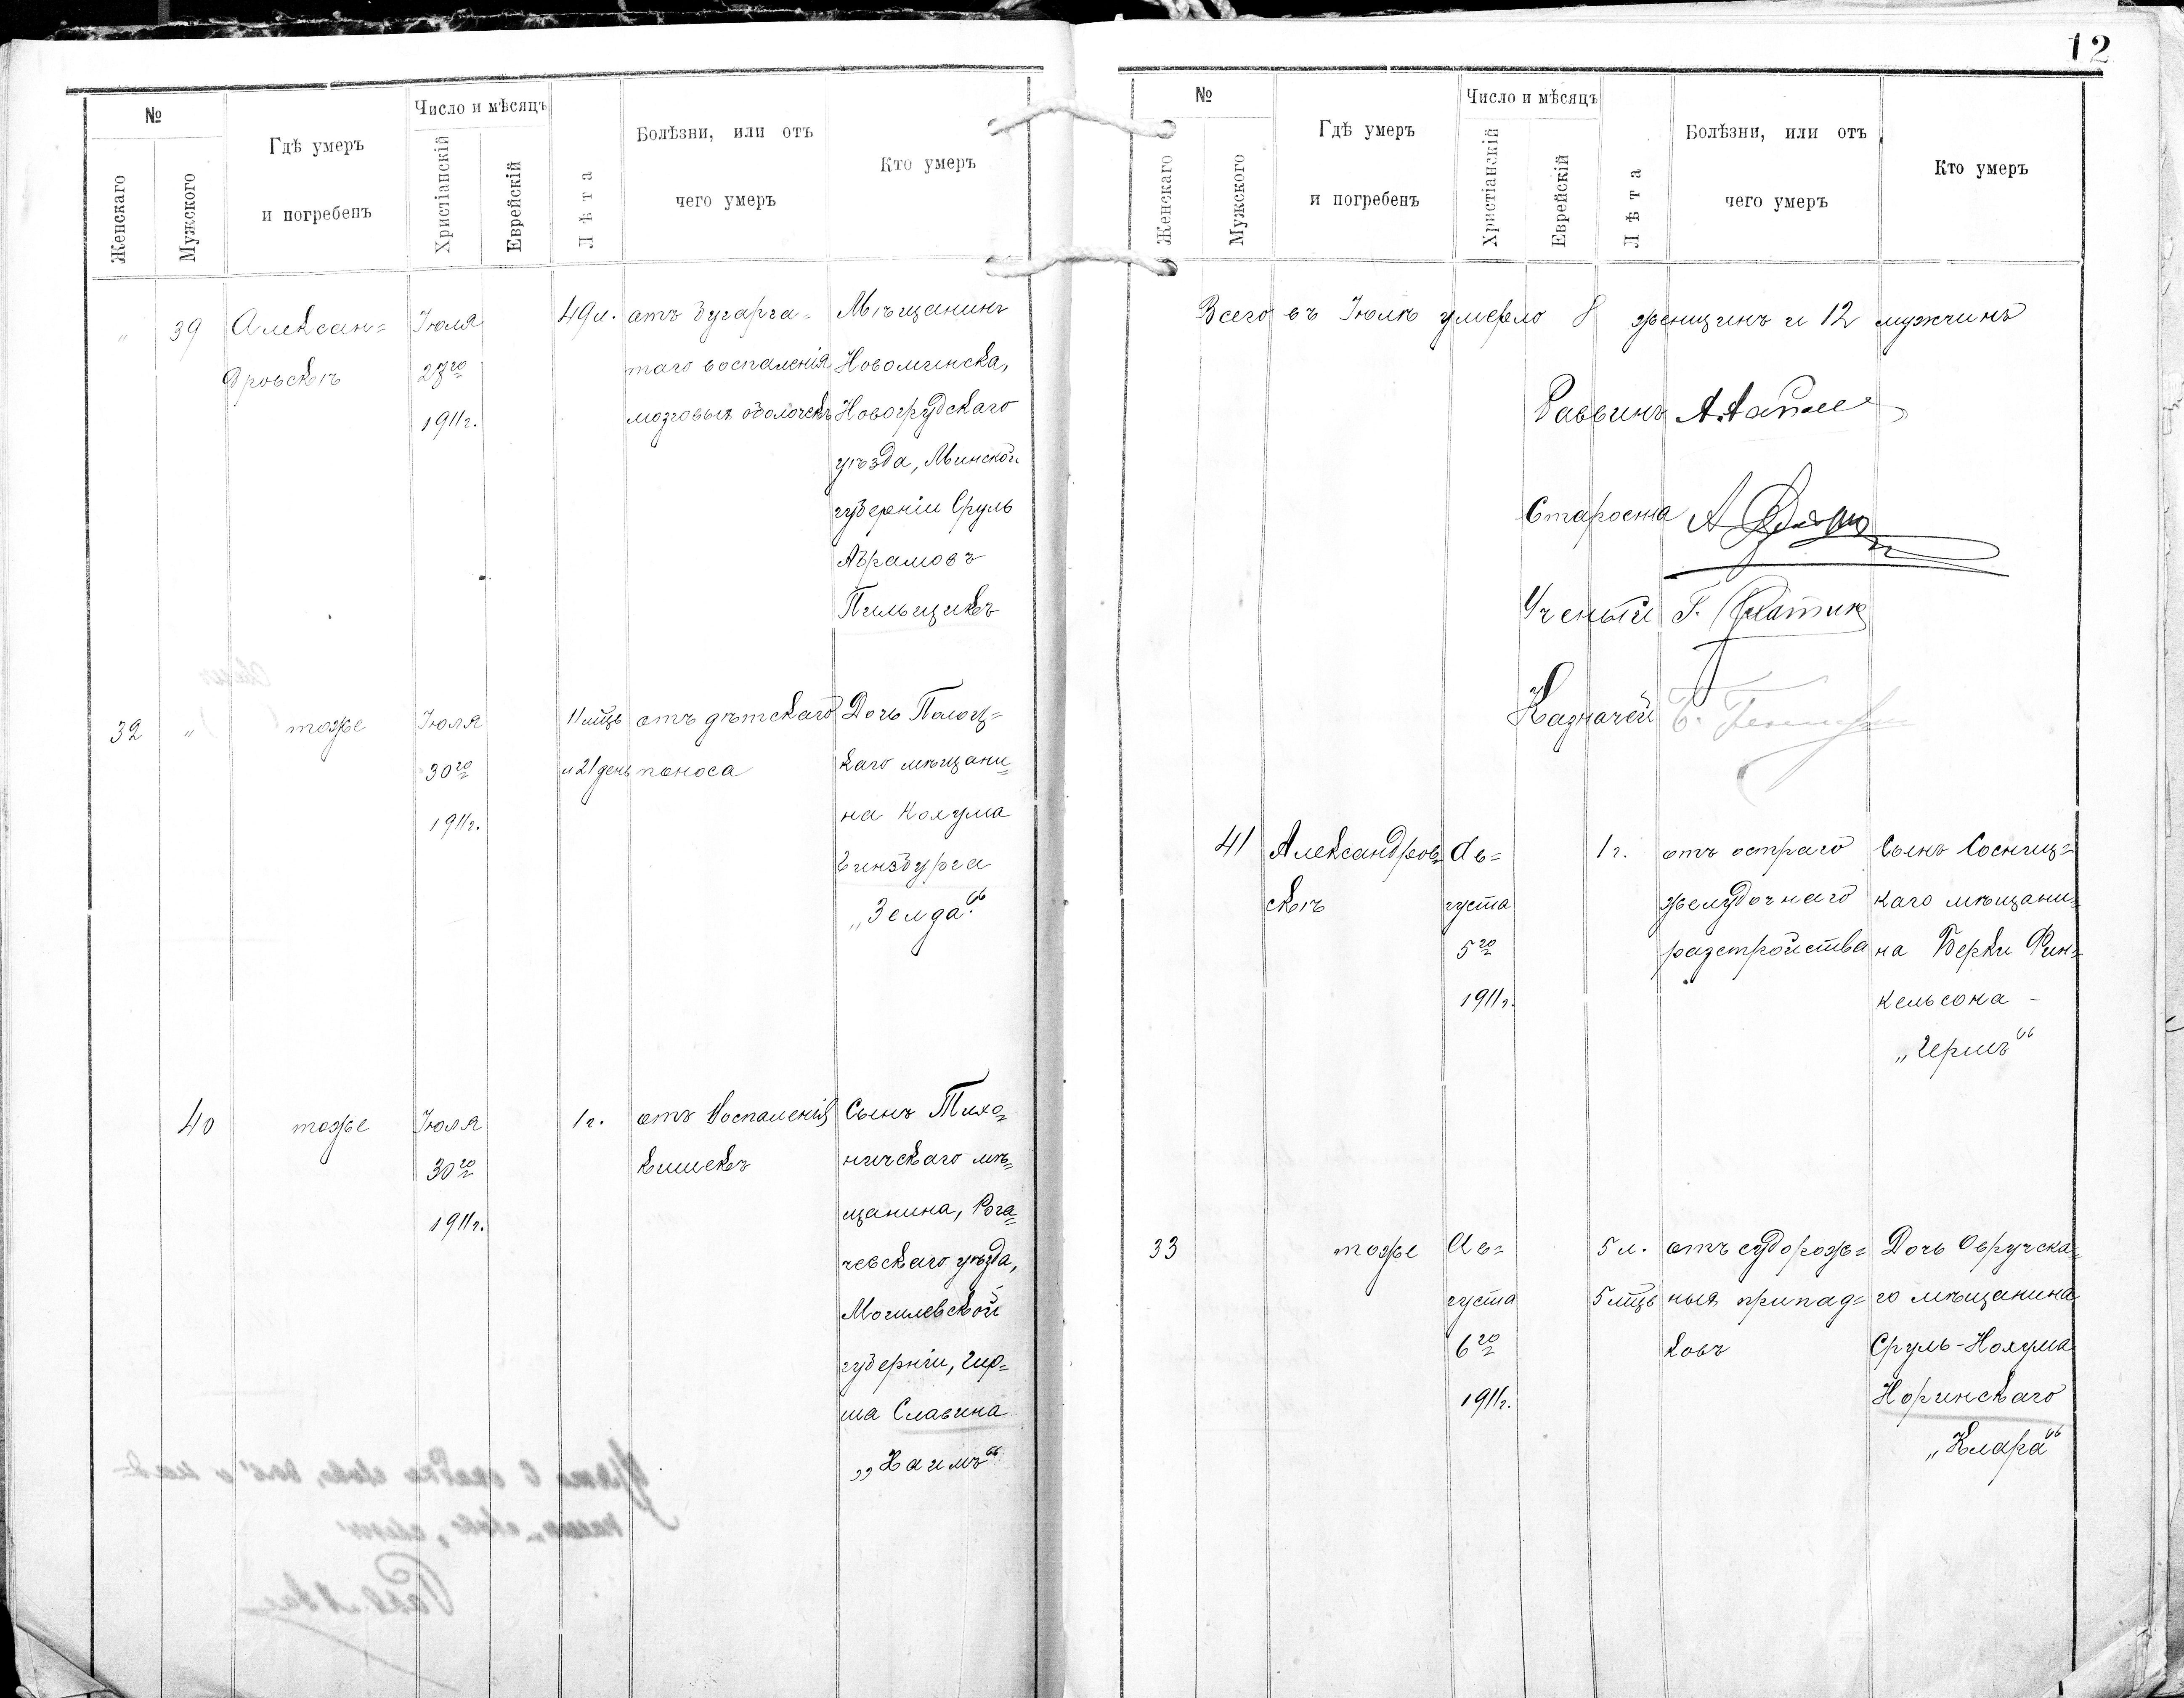 12
№
Женскаго
Мужского
Гдѣ умеръ
и погребенъ
Число и мѣсяцъ
Христіанскій
Еврейскій
Лѣта
Болѣзни, или отъ
чего умеръ
Кто умеръ
„
39
Алексан=
дровскѣ
Іюля
1911г.
49 л.
отъ бугорча=
таго воспаленія
мозговыя оболочекъ
Мѣщанинъ
Новомышска,
Новогрудскаго
уѣзда, Минской
губерніи Сруль
Абрамовъ
Пильщикъ
32
„
тоже
Іюля
30го
1911г.
11 мцъ
и 21 день
отъ дѣтскаго
поноса
Дочь Полоц=
каго мѣщани=
на Нохума
Гинзбурга
„Зелда“
40
тоже
Іюля
30го
1911г.
1г.
отъ воспаленія
кишекъ
Сынъ Тихо=
ничскаго мѣ=
щанина, Рога=
чевскаго уѣзда,
Могилевской
губерніи, Гир=
ша Славина
„Хаимъ“
№
Женскаго
Мужского
Гдѣ умеръ
и погребенъ
Число и мѣсяцъ
Христіанскій
Еврейскій
Лѣта
Болѣзни, или отъ
чего умеръ
Кто умеръ
Всего въ Іюлѣ умерло 8 женщинъ и 12 мужчинъ
Раввинъ
Староста
Ученый
Казначей
41
Александров=
скѣ
Ав=
густа
5го
1911г.
1г.
отъ остраго
желудочнаго
разстройства
Сынъ Сосниц=
каго мѣщани=
на Берки Фин=
кельсона -
33
тоже
Ав=
густа
6го
1911г.
5 л.
5 мцъ
отъ судорож=
ныя припад=
ковъ
Дочь Овручска=
го мѣщанина
Сруль-Нохума
Норинскаго
„Клара“